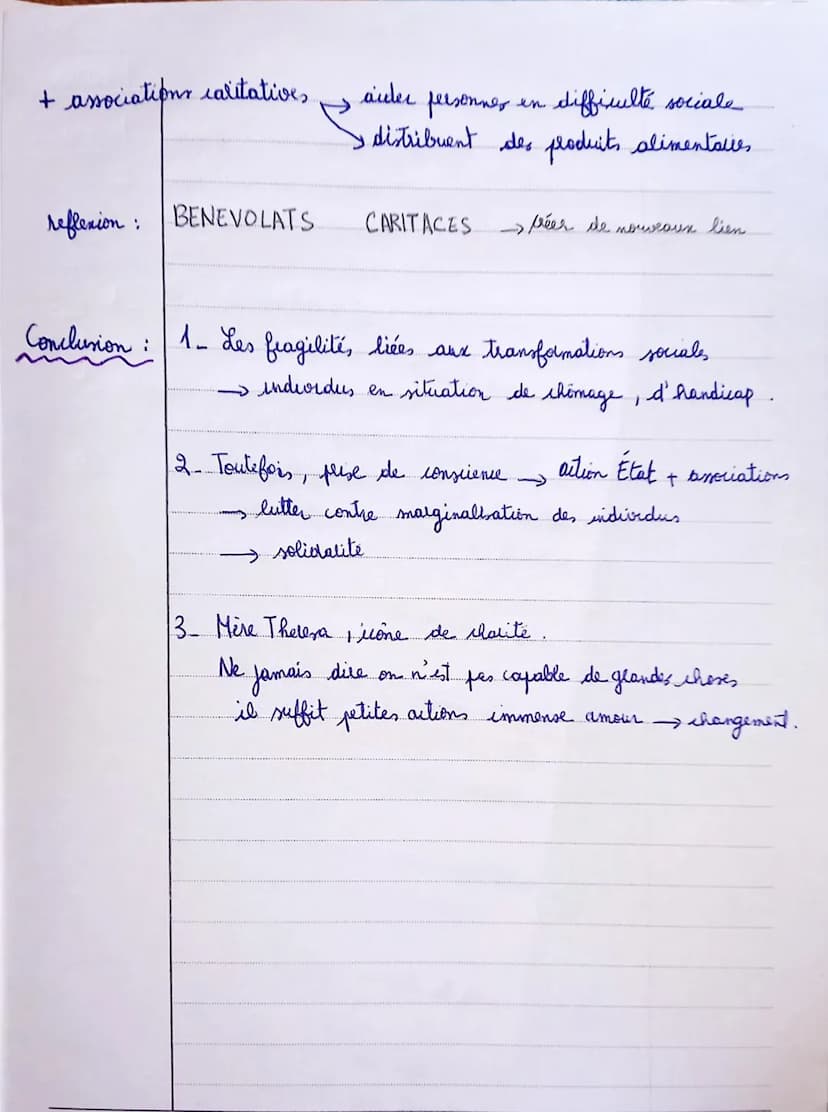 + associations caritatives → aider personnes en difficulté sociale
→ distribuent des produits alimentaires
reflexion : BENEVOLATS CARITACES → créer de nouveaux lien
Conclusion : 1- Les fragilités liées aux transformations sociales
→ individus en situation de chômage, d'handicap.
2- Toutefois, prise de conscience → action État + associations
→ lutter contre marginalisation des individus
→ solidarité
3- Mère Theresa, icône de charité.
Ne jamais dire on n'est pas capable de grandes choses
il suffit petites actions immense amour → changement.